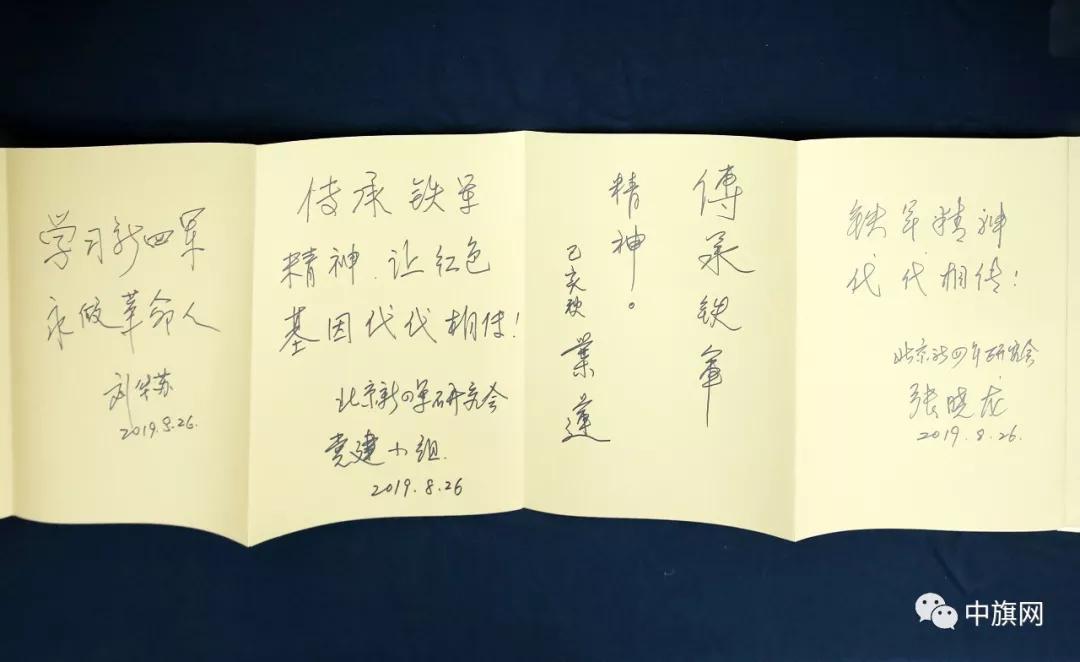 学习新四军
永做革命人
刘华苏
2019.8.26.
传承铁军
精神、让红色
基因代代相传!
北京新四军研究会
党建小组.
2019.8.26
傳承铁軍
精神。
己亥秋
業蓮
铁军精神
代代相传!
北京新四军研究会
张晓龙
2019.8.26.
中旗网